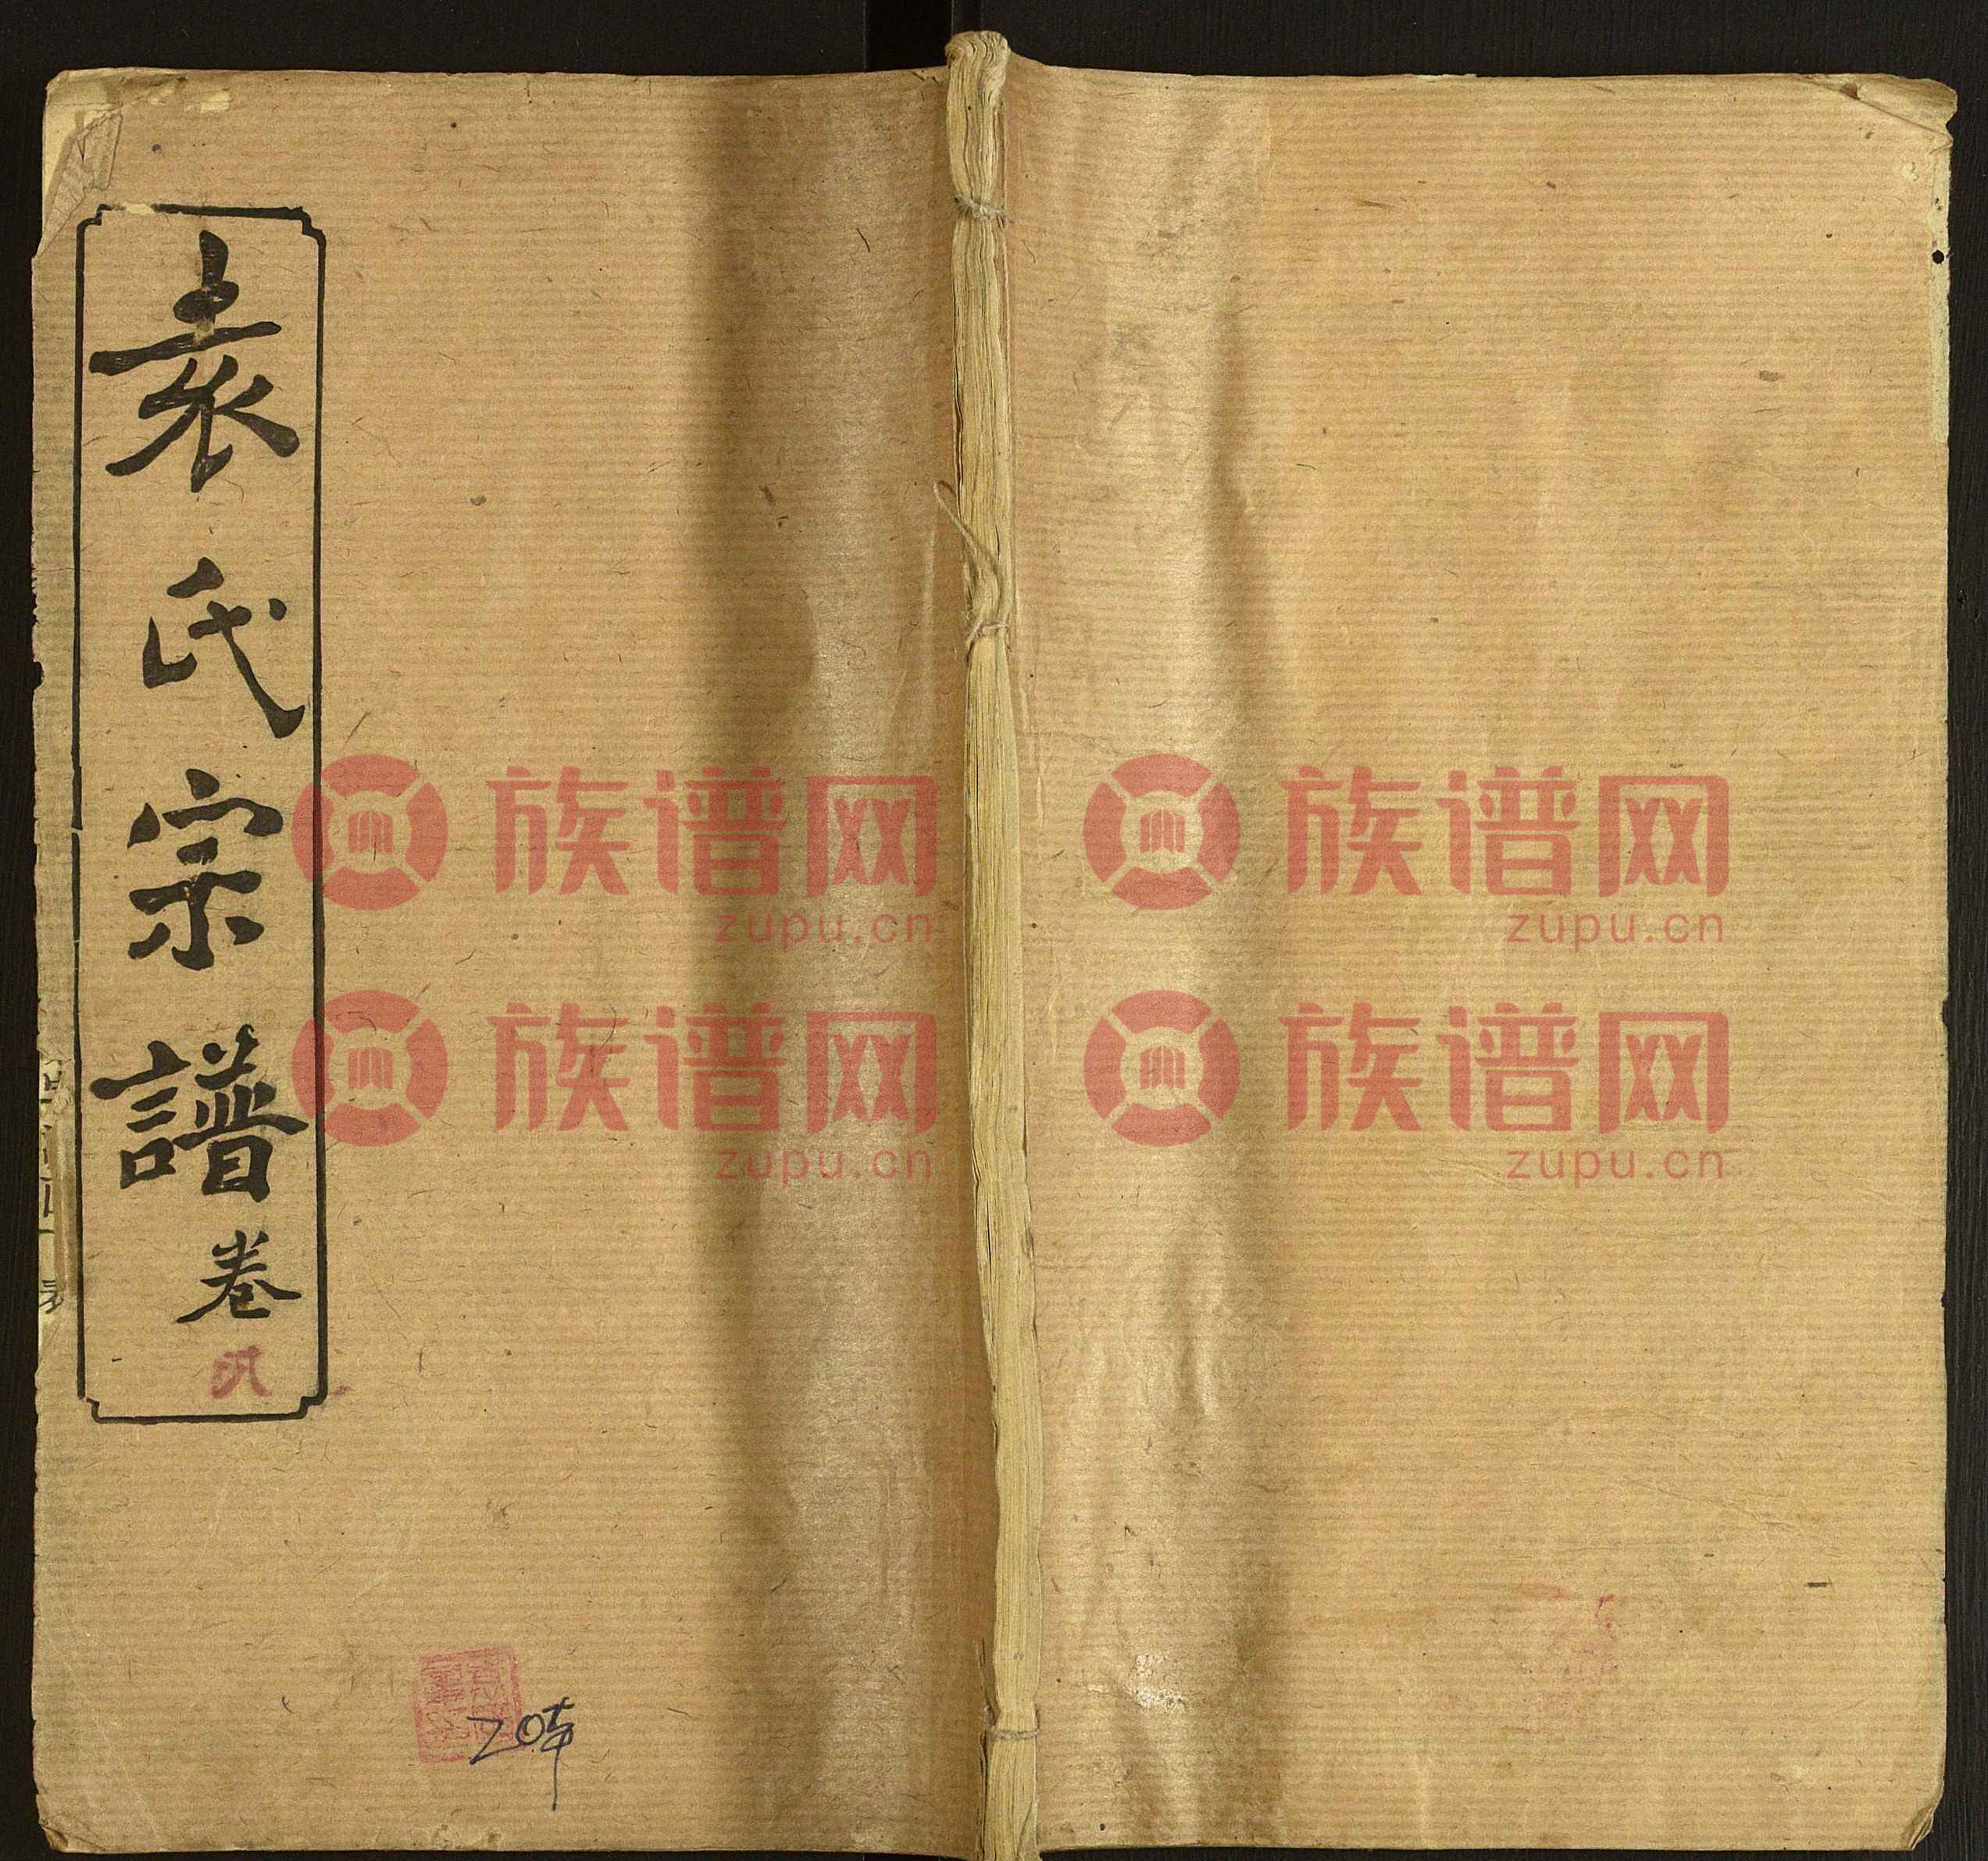 袁氏宗譜卷
族谱网
zupu.cn
族谱网
zupu.cn
族谱网
zupu.cn
族谱网
zupu.cn
20本